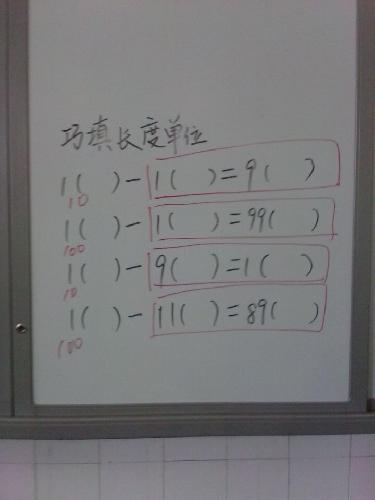 巧填长度单位
1( )-1( )=9( )
10
1( )-1( )=99( )
100
1( )-9( )=1( )
10
1( )-11( )=89( )
100